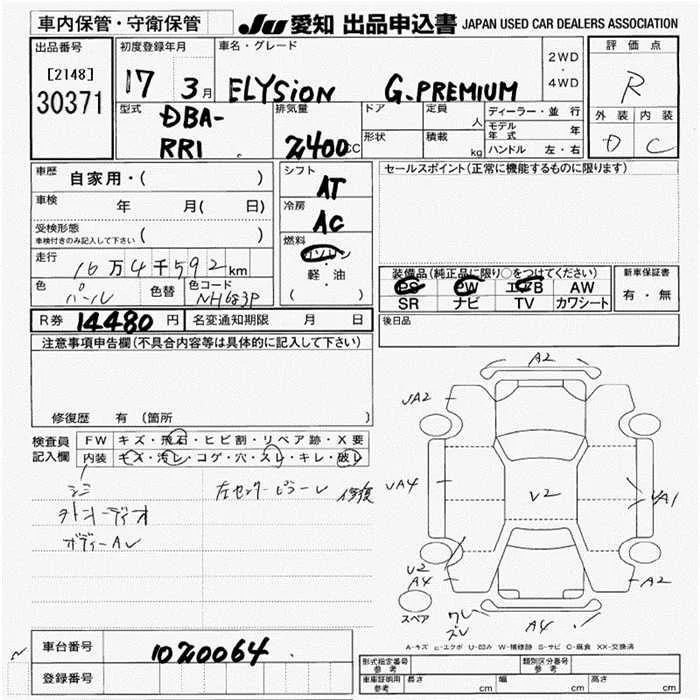 車内保管・守衛保管
JU 愛知 出品申込書 JAPAN USED CAR DEALERS ASSOCIATION
出品番号
[2148]
30371
初度登録年月
17 3月
車名・グレード
ELYSION G.PREMIUM
2WD
・
4WD
評価点
R
外装 内装
D C
型式
DBA-
RR1
排気量
2400 CC
ドア
形状
定員
人
積載
kg
ディーラー・並行
モデル年式 年
ハンドル 左・右
車歴
自家用・( )
車検
年 月( 日)
受検形態
車検付きのみ記入して下さい ( )
走行
16万4千592km
色
パール
色替
色コード
NH683P
シフト
AT
冷房
AC
燃料
ガソリン
・
軽・油
( )
セールスポイント(正常に機能するものに限ります)
装備品(純正品に限り○をつけてください)
PS PW エアB AW
SR ナビ TV カワシート
新車保証書
有・無
R券 14480円
名変通知期限 月 日
後日品
注意事項申告欄(不具合内容等は具体的に記入して下さい)
修復歴 有 (箇所
検査員
記入欄
FW キズ・飛石・ヒビ割・リペア跡・X要
内装 キズ・汚レ・コゲ・穴・スレ・キレ・破レ
左センターピラーレ 修復
A2
UA2
UA4
V2
UA1
U2
A4
A2
スペア
ワレ
スレ
A4
A-キズ E-エクボ U-凹み W-補修跡 S-サビ C-腐食 XX-交換済
車台番号
1020064
登録番号
形式指定番号
参考
類別区分番号
参考
車庫証明用
参考
長さ cm
幅 cm
高さ cm